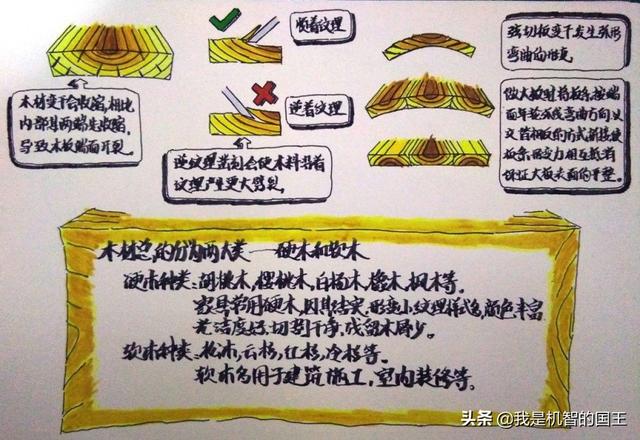 顺着纹理
逆着纹理
木材变干会收缩,相比
内部其两端先收缩,
导致木板端面开裂。
逆纹理凿刻会使木料沿着
纹理产生更大劈裂
弦切板变干发生弧形
弯曲的形变
做大板时将板条按端
面年轮弧线弯曲方向以
交首相反的方式拼接使
板条应力相互抵消
保证大板表面的平整。
木材总的分为两大类——硬木和软木
硬木种类:胡桃木,樱桃木,白杨木,橡木,枫木等。
家具常用硬木,因其结实,形变小纹理样式多,颜色丰富
光洁度好,切割干净,残留木屑少。
软木种类:松木,云杉,红杉,冷杉等。
软木多用于建筑施工,室内装修等。
头条 @我是机智的国王